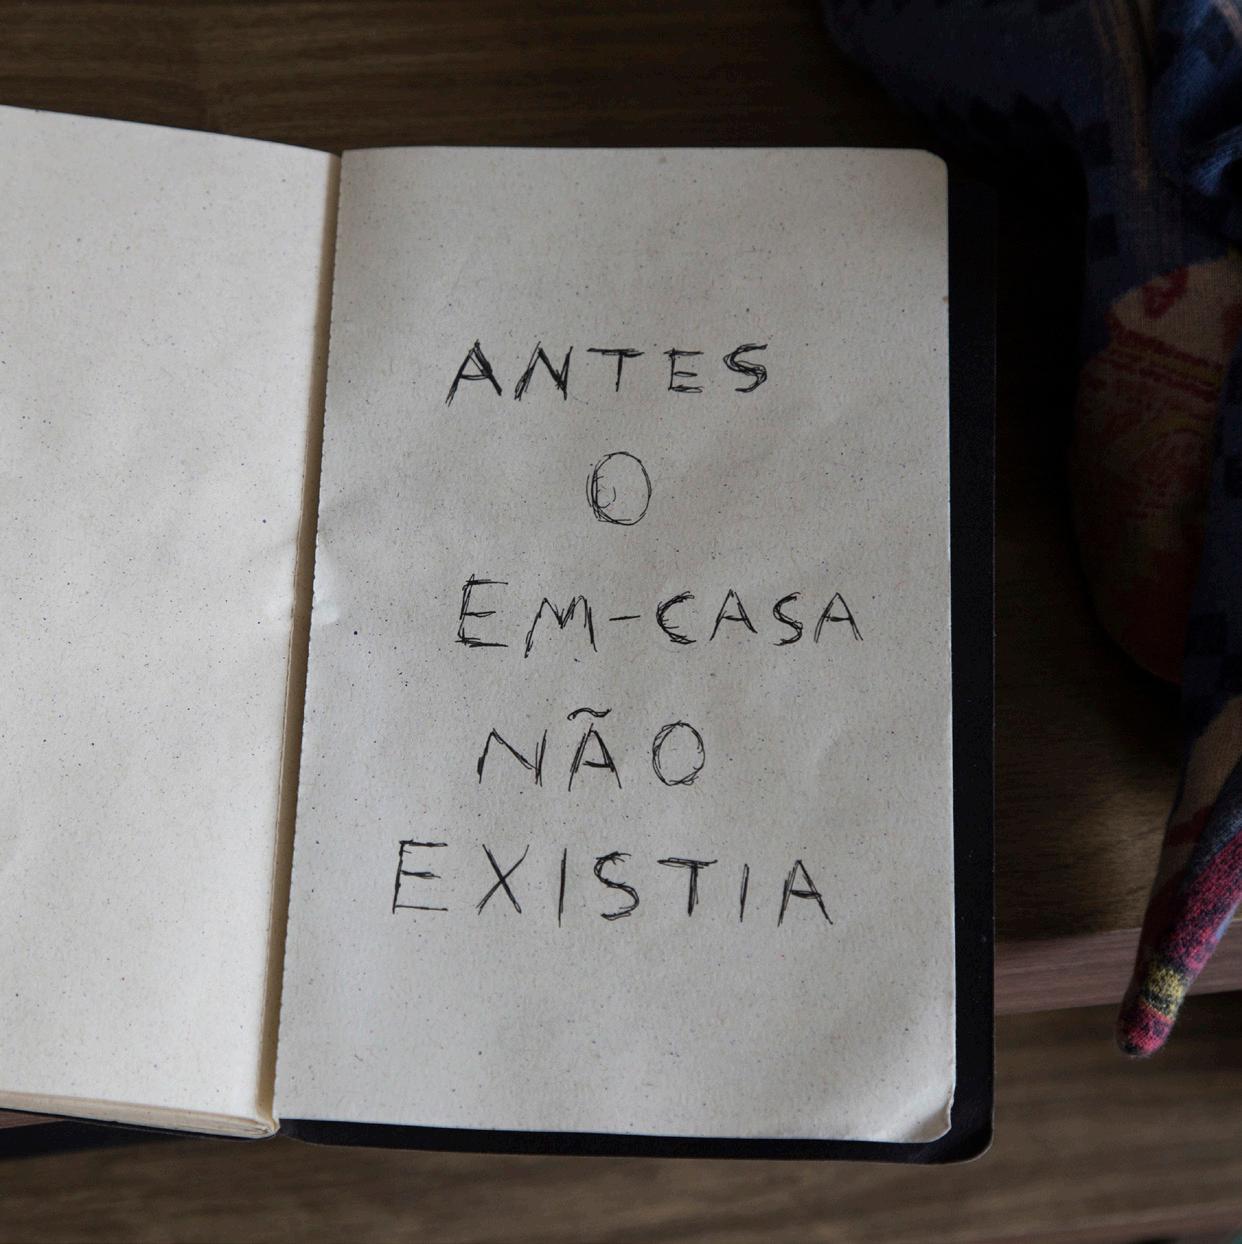 ANTES
O
EM-CASA
NÃO
EXISTIA